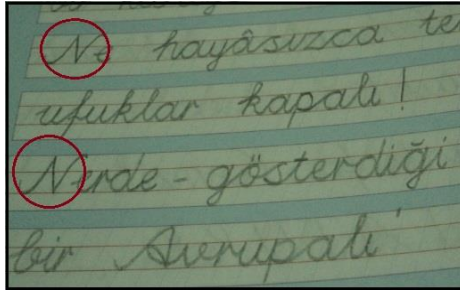 Ne hayâsızca te
ufuklar kapalı!
Nerde - gösterdiği
bir Avrupalı'